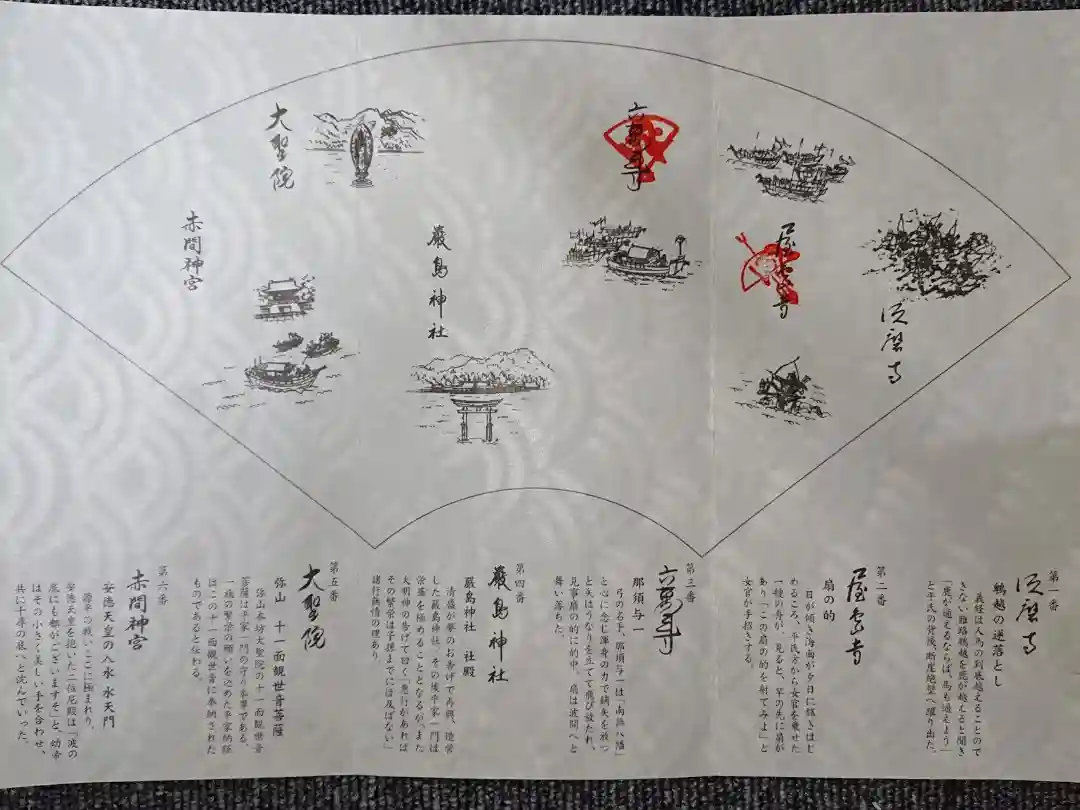 須磨寺
屋島寺
六萬寺
嚴島神社
大聖院
赤間神宮
第一番
須磨寺
鵯越の逆落とし
義経は人馬の到底越えることので
きない難路鵯越を鹿が越えると聞き
「鹿が通えるならば、馬も通えよう」
と平氏の背後、断崖絶壁へ躍り出た。
第二番
屋島寺
扇の的
日が傾き海面が夕日に輝きはじ
めるころ、平氏方から女官を乗せた
一艘の舟が、見ると、竿の先に扇が
あり「この扇の的を射てみよ」と
女官が手招きする。
第三番
六萬寺
那須与一
弓の名手、那須与一は「南無八幡」
と心に念じ渾身の力で鏑矢を放つ
と矢はうなりを立てて飛び放たれ、
見事扇の的に的中、扇は波間へと
舞い落ちた。
第四番
嚴島神社
厳島神社 社殿
清盛が夢のお告げで再興、造営
した厳島神社。その後平家一門は
栄華を極めることとなるが、また
大明神の告げて曰く「悪行があれば
その繁栄は子孫までには及ばない」
諸行無情の理あり
第五番
大聖院
弥山 十一面観世音菩薩
弥山本坊大聖院の十一面観世音
菩薩は平家一門の守り本尊である。
一族の繁栄の願いを込めた平家納経
はこの十一面観世音に奉納された
ものであると伝わる。
第六番
赤間神宮
安徳天皇の入水 水天門
源平の戦い、ここに極まれり。
安徳天皇を抱いた二位尼殿は「波の
底にも都がございますぞ」と、幼帝
はその小さく美しい手を合わせ、
共に千尋の底へと沈んでいった。